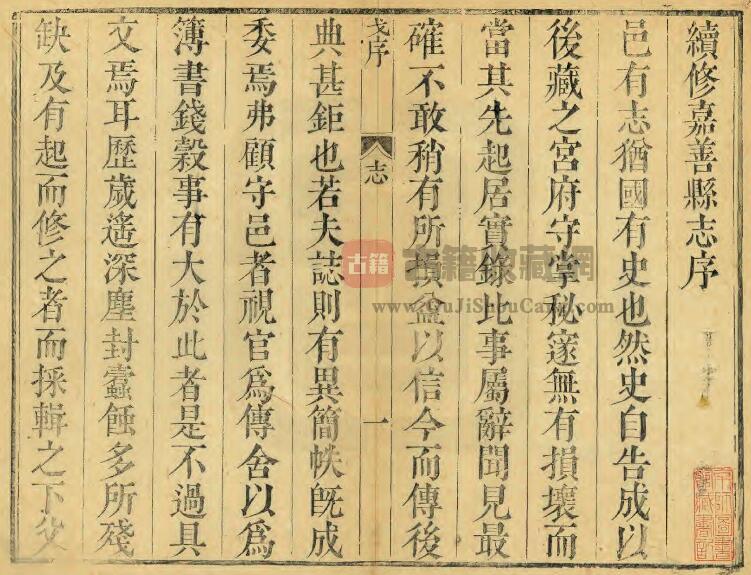 續修嘉善縣志序
邑有志猶國有史也然史自告成以
後藏之宮府守掌秘邃無有損壞而
當其先起居實錄比事屬辭聞見最
確不敢稍有所損益以信今而傳後
戈序
志
一
典甚鉅也若夫誌則有異簡帙旣成
委焉弗顧守邑者視官爲傳舍以爲
簿書錢穀事有大於此者是不過具
文焉耳歷歲遙深塵封蠹蝕多所殘
缺及有起而修之者而採輯之下役
古籍
古籍收藏網
www.GuJiShouCang.com